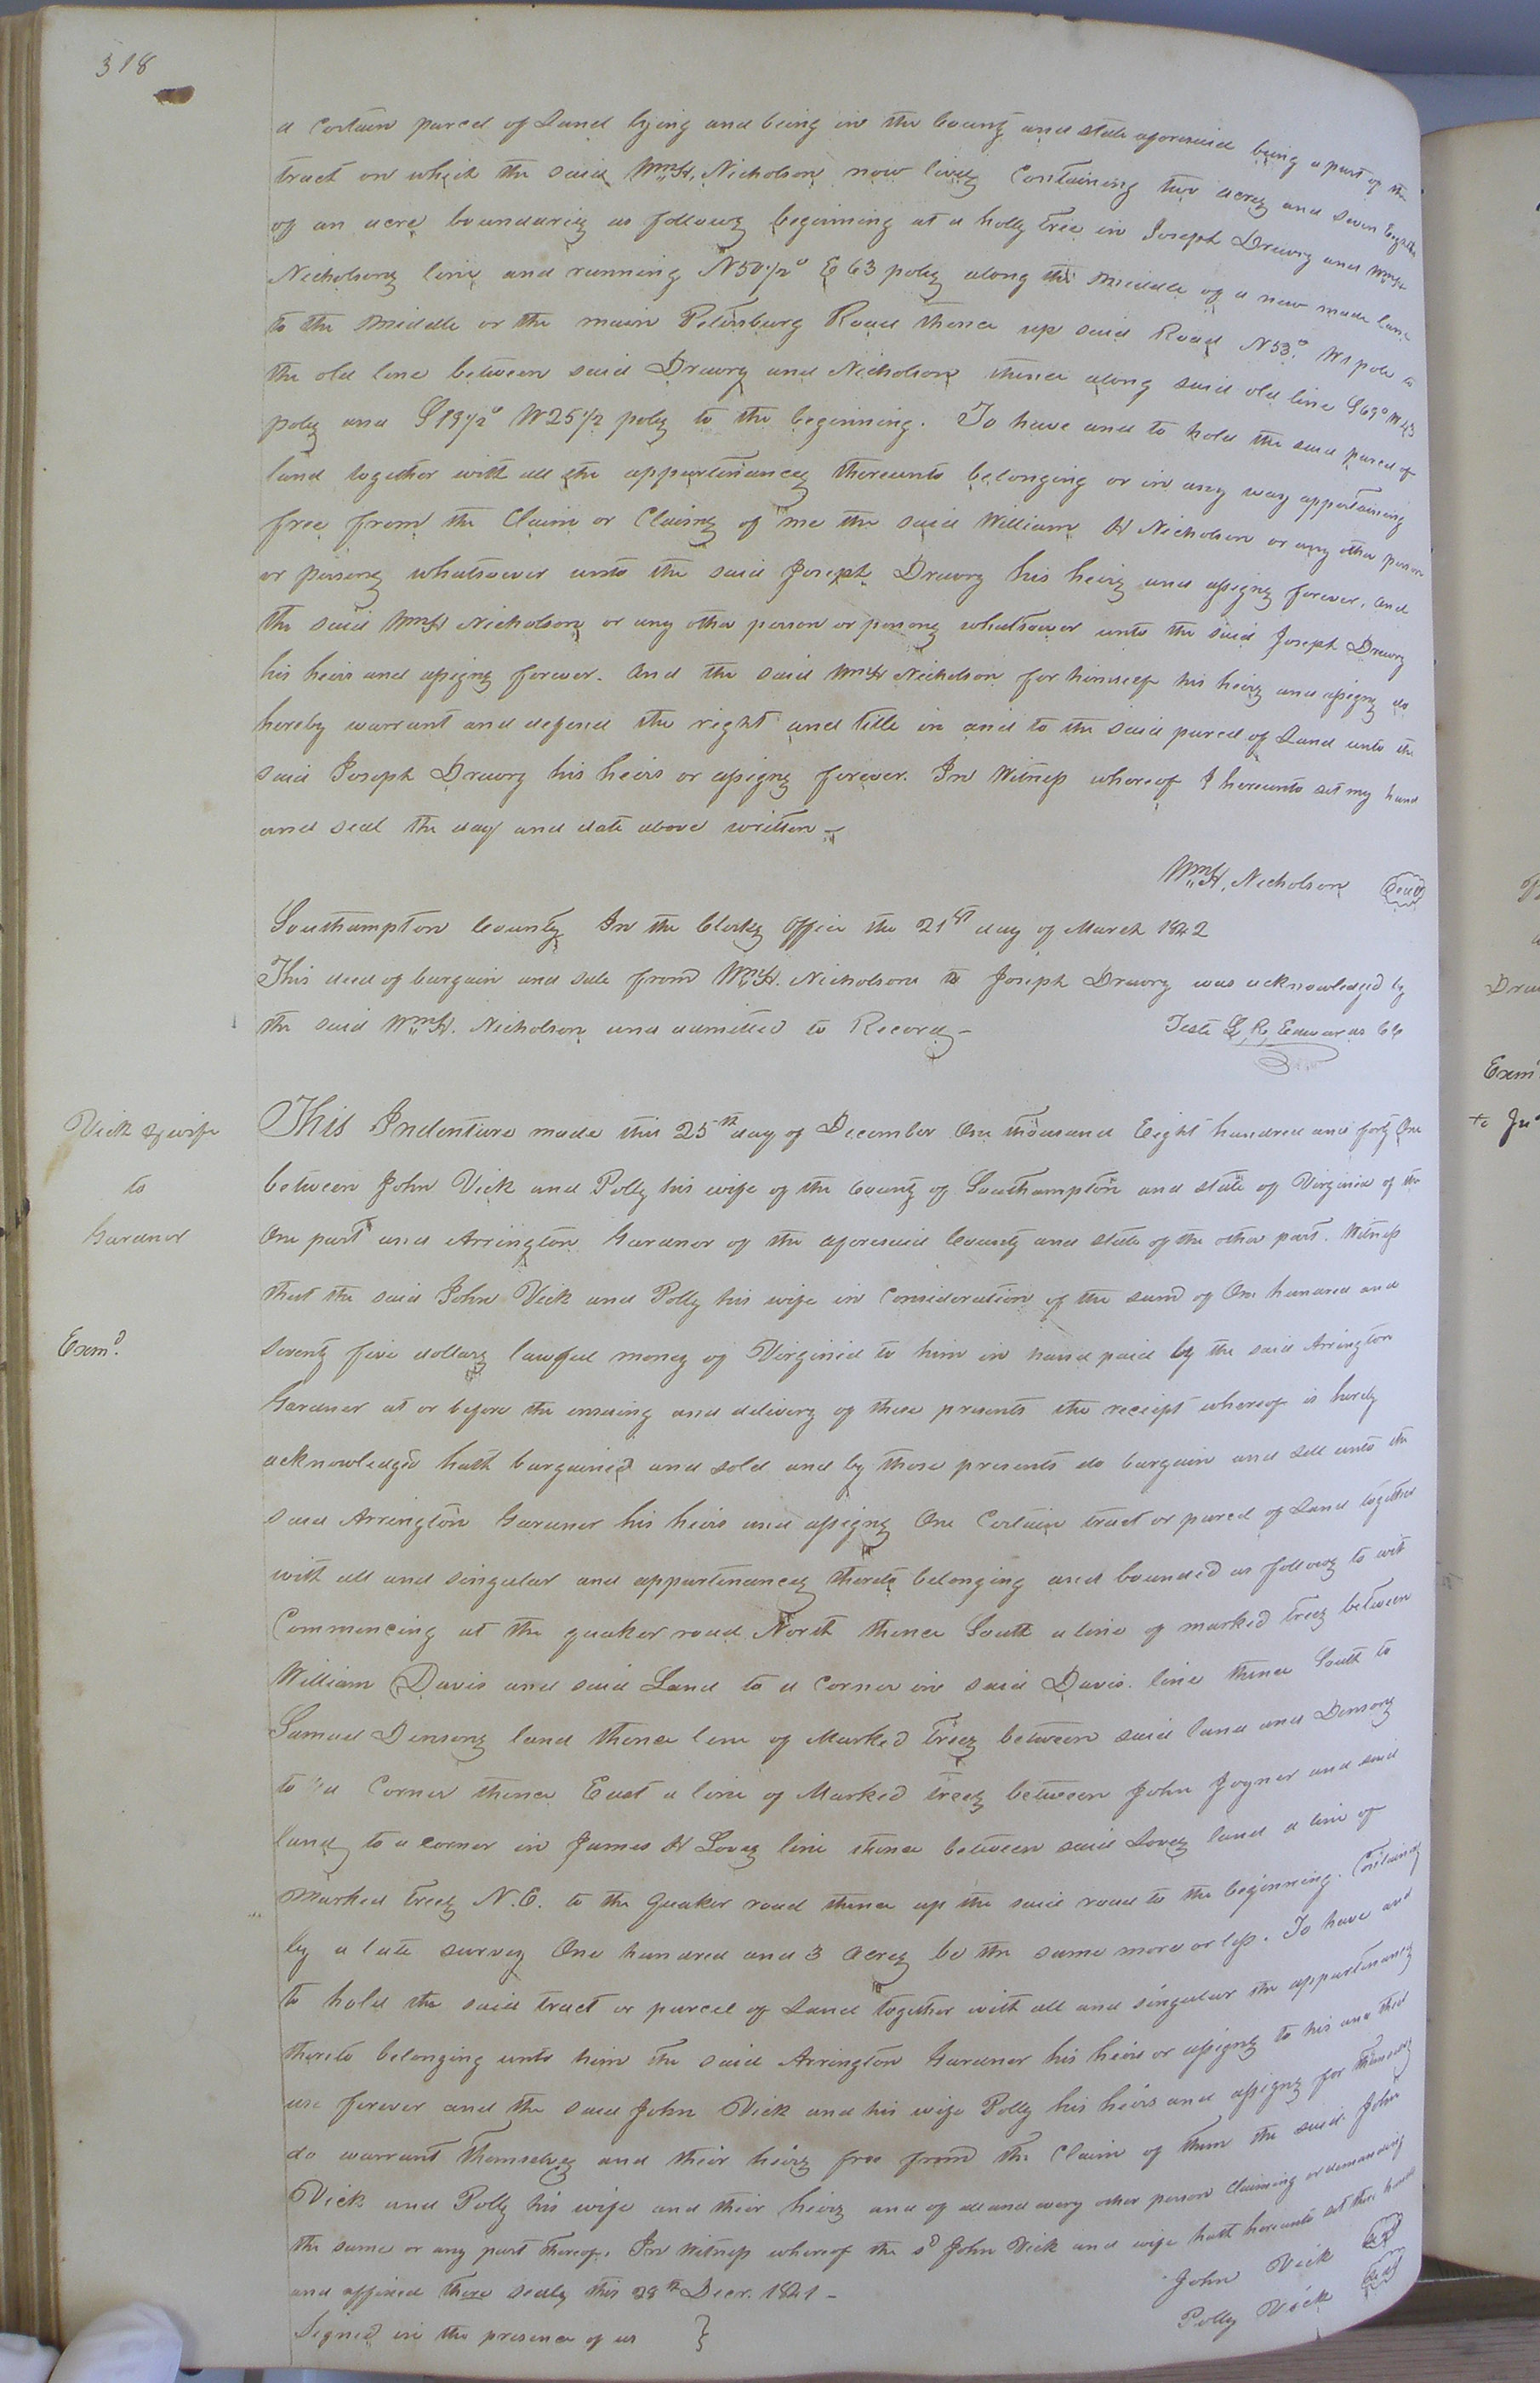 318
a certain parcel of Land lying and being in the County and state aforesaid being a part of the
tract on which the said Wm H. Nicholson now lives Containing two acres and seven Eighths
of an acre boundaries as follows beginning at a holly tree in Joseph Drewry and Wm H
Nicholsons line and running N 50 1/2° E 63 poles along the middle of a new made lane
to the middle or the main Petersburg Road thence up said Road N 53° W 1 pole to
the old line between said Drewry and Nicholson thence along said old line S 69° W 43
poles and S 19 1/2° W 25 1/2 poles to the beginning. To have and to hold the said parcel of
land together with all the appurtenances thereunto belonging or in any way appertaining
free from the Claim or Claims of me the said William H Nicholson or any other person
or persons whatsoever unto the said Joseph Drewry his heirs and assigns forever. and
the said Wm H Nicholson or any other person or persons whatsoever unto the said Joseph Drewry
his heirs and assigns forever. And the said Wm H Nicholson for himself his heirs and assigns do
hereby warrant and defend the right and title in and to the said parcel of Land unto the
said Joseph Drewry his heirs or assigns forever. In Witness whereof I hereunto set my hand
and seal the day and date above written –
Wm H. Nicholson Seal
Southampton County In the Clerks Office the 21st day of March 1842
This deed of bargain and sale from Wm H. Nicholson to Joseph Drewry was acknowledged by
the said Wm H. Nicholson and admitted to Record –
Teste L. R. Edwards CC
Vick & wife
to
Gardner
Exmd.
This Indenture made this 25th day of December One thousand Eight hundred and forty One
between John Vick and Polly his wife of the County of Southampton and state of Virginia of the
One part and Arrington Gardner of the aforesaid County and state of the other part. Witness
that the said John Vick and Polly his wife in Consideration of the sum of One hundred and
seventy five dollars lawful money of Virginia to him in hand paid by the said Arrington
Gardner at or before the ensuing and delivery of these presents the receipt whereof is hereby
acknowledged hath bargained and sold and by those presents do bargain and sell unto the
said Arrington Gardner his heirs and assigns One Certain tract or parcel of Land together
with all and singular and appurtenances thereto belonging and bounded as follows to wit
Commencing at the quaker road North thence South a line of marked trees between
William Davis and said Land to a Corner in said Davis. line thence South to
Samuel Densons land thence line of Marked trees between said land and Densons
to a Corner thence East a line of Marked trees between John Joyner and said
land to a corner in James H Loves line thence between said Loves land a line of
Marked trees N.E. to the Quaker road thence up the said road to the beginning. Containing
by a late survey One hundred and 3 Acres be the same more or less. To have and
to hold the said tract or parcel of Land together with all and singular the appurtenances
thereto belonging unto him the said Arrington Gardner his heirs or assigns to his and their
use forever and the said John Vick and his wife Polly his heirs and assigns for themselves
do warrant themselves and their heirs free from the Claim of them the said John
Vick and Polly his wife and their heirs and of all and every other person Claiming or demanding
the same or any part thereof. In Witness whereof the sd John Vick and wife hath hereunto set their hand
and affixed there seals this 28th Decr. 1841 –
John Vick Seal
Polly Vick Seal
Signed in the presence of us }